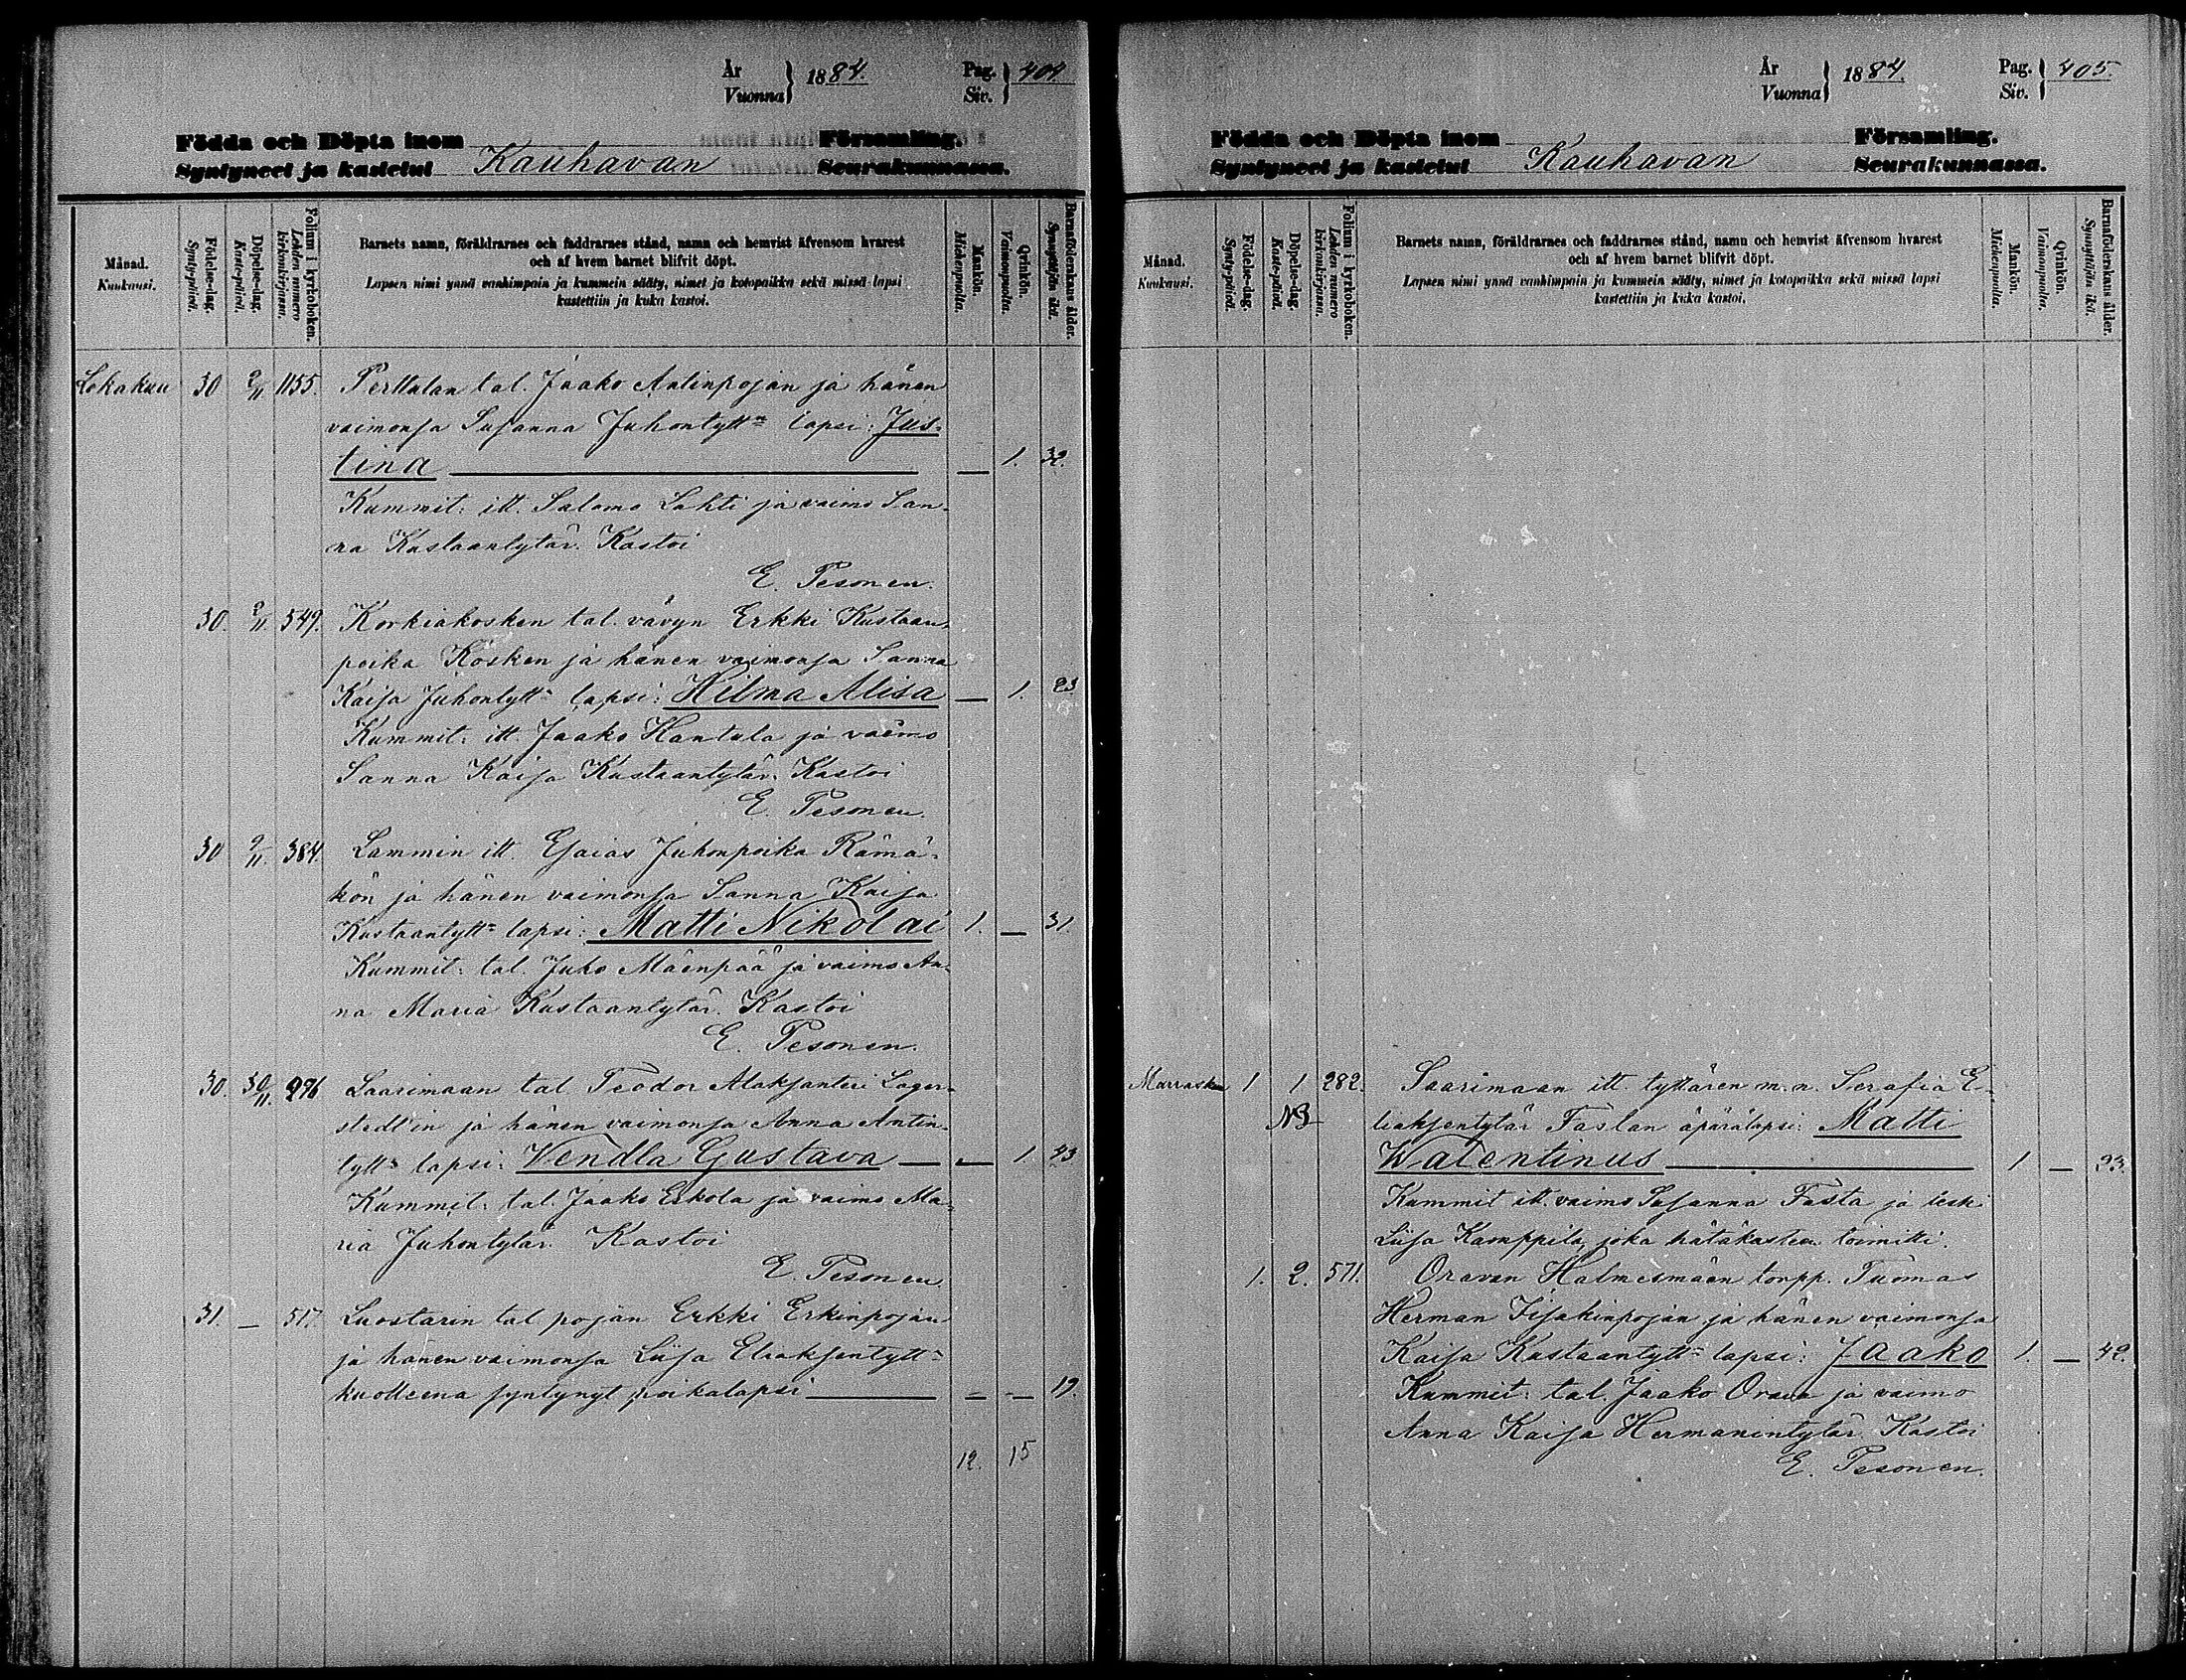 År
Vuonna } 1884. Pag.
Siv. } 404
Födda och Döpta inom Församling.
Syntyneet ja kastetut Kauhavan Seurakunnassa.
Månad.
Kuukausi.
Födelse-dag.
Synty-päivä.
Döpelse-dag.
Kaste-päivä.
Folium i kyrkoboken.
Lehden numero
kirkonkirjassa.
Barnets namn, föräldrarnes och faddrarnes stånd, namn och hemvist äfvensom hvarest
och af hvem barnet blifvit döpt.
Lapsen nimi ynnä vanhimpain ja kummein sääty, nimet ja kotopaikka sekä missä lapsi
kastettiin ja kuka kastoi.
Mankön.
Miehenpuolta.
Qvinkön.
Vaimonpuolta.
Barnaföderskans ålder.
Synnyttäjän ikä.
Lokakuu 30 2/11 1155. Perttulan tal. Jaako Antinpojan ja hänen
vaimonsa Susanna Juhontytt:n lapsi: Jus-
tina — 1. 32.
Kummit: itt. Salomo Lahti ja vaimo San-
na Kustaantytär. Kastoi
E. Pesonen.
30. 2/11. 549. Korkiakosken tal. vävyn Erkki Kustaan-
poika Kosken ja hänen vaimonsa Sanna
Kaisa Juhontytt:n lapsi: Hilma Alisa — 1. 23
Kummit: itt Jaako Hantula ja vaimo
Sanna Kaisa Kustaantytär. Kastoi
E. Pesonen.
30 9/11. 384. Lammin itt. Esaias Juhonpoika Rämä-
kön ja hänen vaimonsa Sanna Kaisa
Kustaantytt:n lapsi: Matti Nikolai 1. — 31.
Kummit: tal. Juho Mäenpää ja vaimo An-
na Maria Kustaantytär. Kastoi
E. Pesonen.
30. 30/11. 276 Saarimaan tal Teodor Aleksanteri Lager-
stedt'in ja hänen vaimonsa Anna Antin-
tytt:n lapsi: Vendla Gustava — — 1. 43
Kummit: tal. Jaako Eskola ja vaimo Ma-
ria Juhontytär. Kastoi
E. Pesonen.
31. — 517. Luostarin tal pojan Erkki Erkinpojan
ja hänen vaimonsa Liisa Eliaksentytt:n
kuolleena syntynyt poikalapsi — — — 19.
12. 15
År
Vuonna } 1884. Pag.
Siv. } 405.
Födda och Döpta inom Församling.
Syntyneet ja kastetut Kauhavan Seurakunnassa.
Månad.
Kuukausi.
Födelse-dag.
Synty-päivä.
Döpelse-dag.
Kaste-päivä.
Folium i kyrkoboken.
Lehden numero
kirkonkirjassa.
Barnets namn, föräldrarnes och faddrarnes stånd, namn och hemvist äfvensom hvarest
och af hvem barnet blifvit döpt.
Lapsen nimi ynnä vanhimpain ja kummein sääty, nimet ja kotopaikka sekä missä lapsi
kastettiin ja kuka kastoi.
Mankön.
Miehenpuolta.
Qvinkön.
Vaimonpuolta.
Barnaföderskans ålder.
Synnyttäjän ikä.
Marrask. 1 1 282. Saarimaan itt. tyttären m. n. Serafia E-
NB liaksentytär Fastan äpärälapsi: Matti
Walentinus — 1 — 23.
Kummit itt. vaimo Susanna Fasta ja leski
Liisa Kamppila, joka hätäkasteen toimitti.
1. 2. 571. Oravan Halmesmäen torpp. Tuomas
Herman Iisakinpojan ja hänen vaimonsa
Kaisa Kustaantytt:n lapsi: Jaako 1. — 42.
Kummit: tal. Jaako Orava ja vaimo
Anna Kaisa Hermanintytär. Kastoi
E. Pesonen.